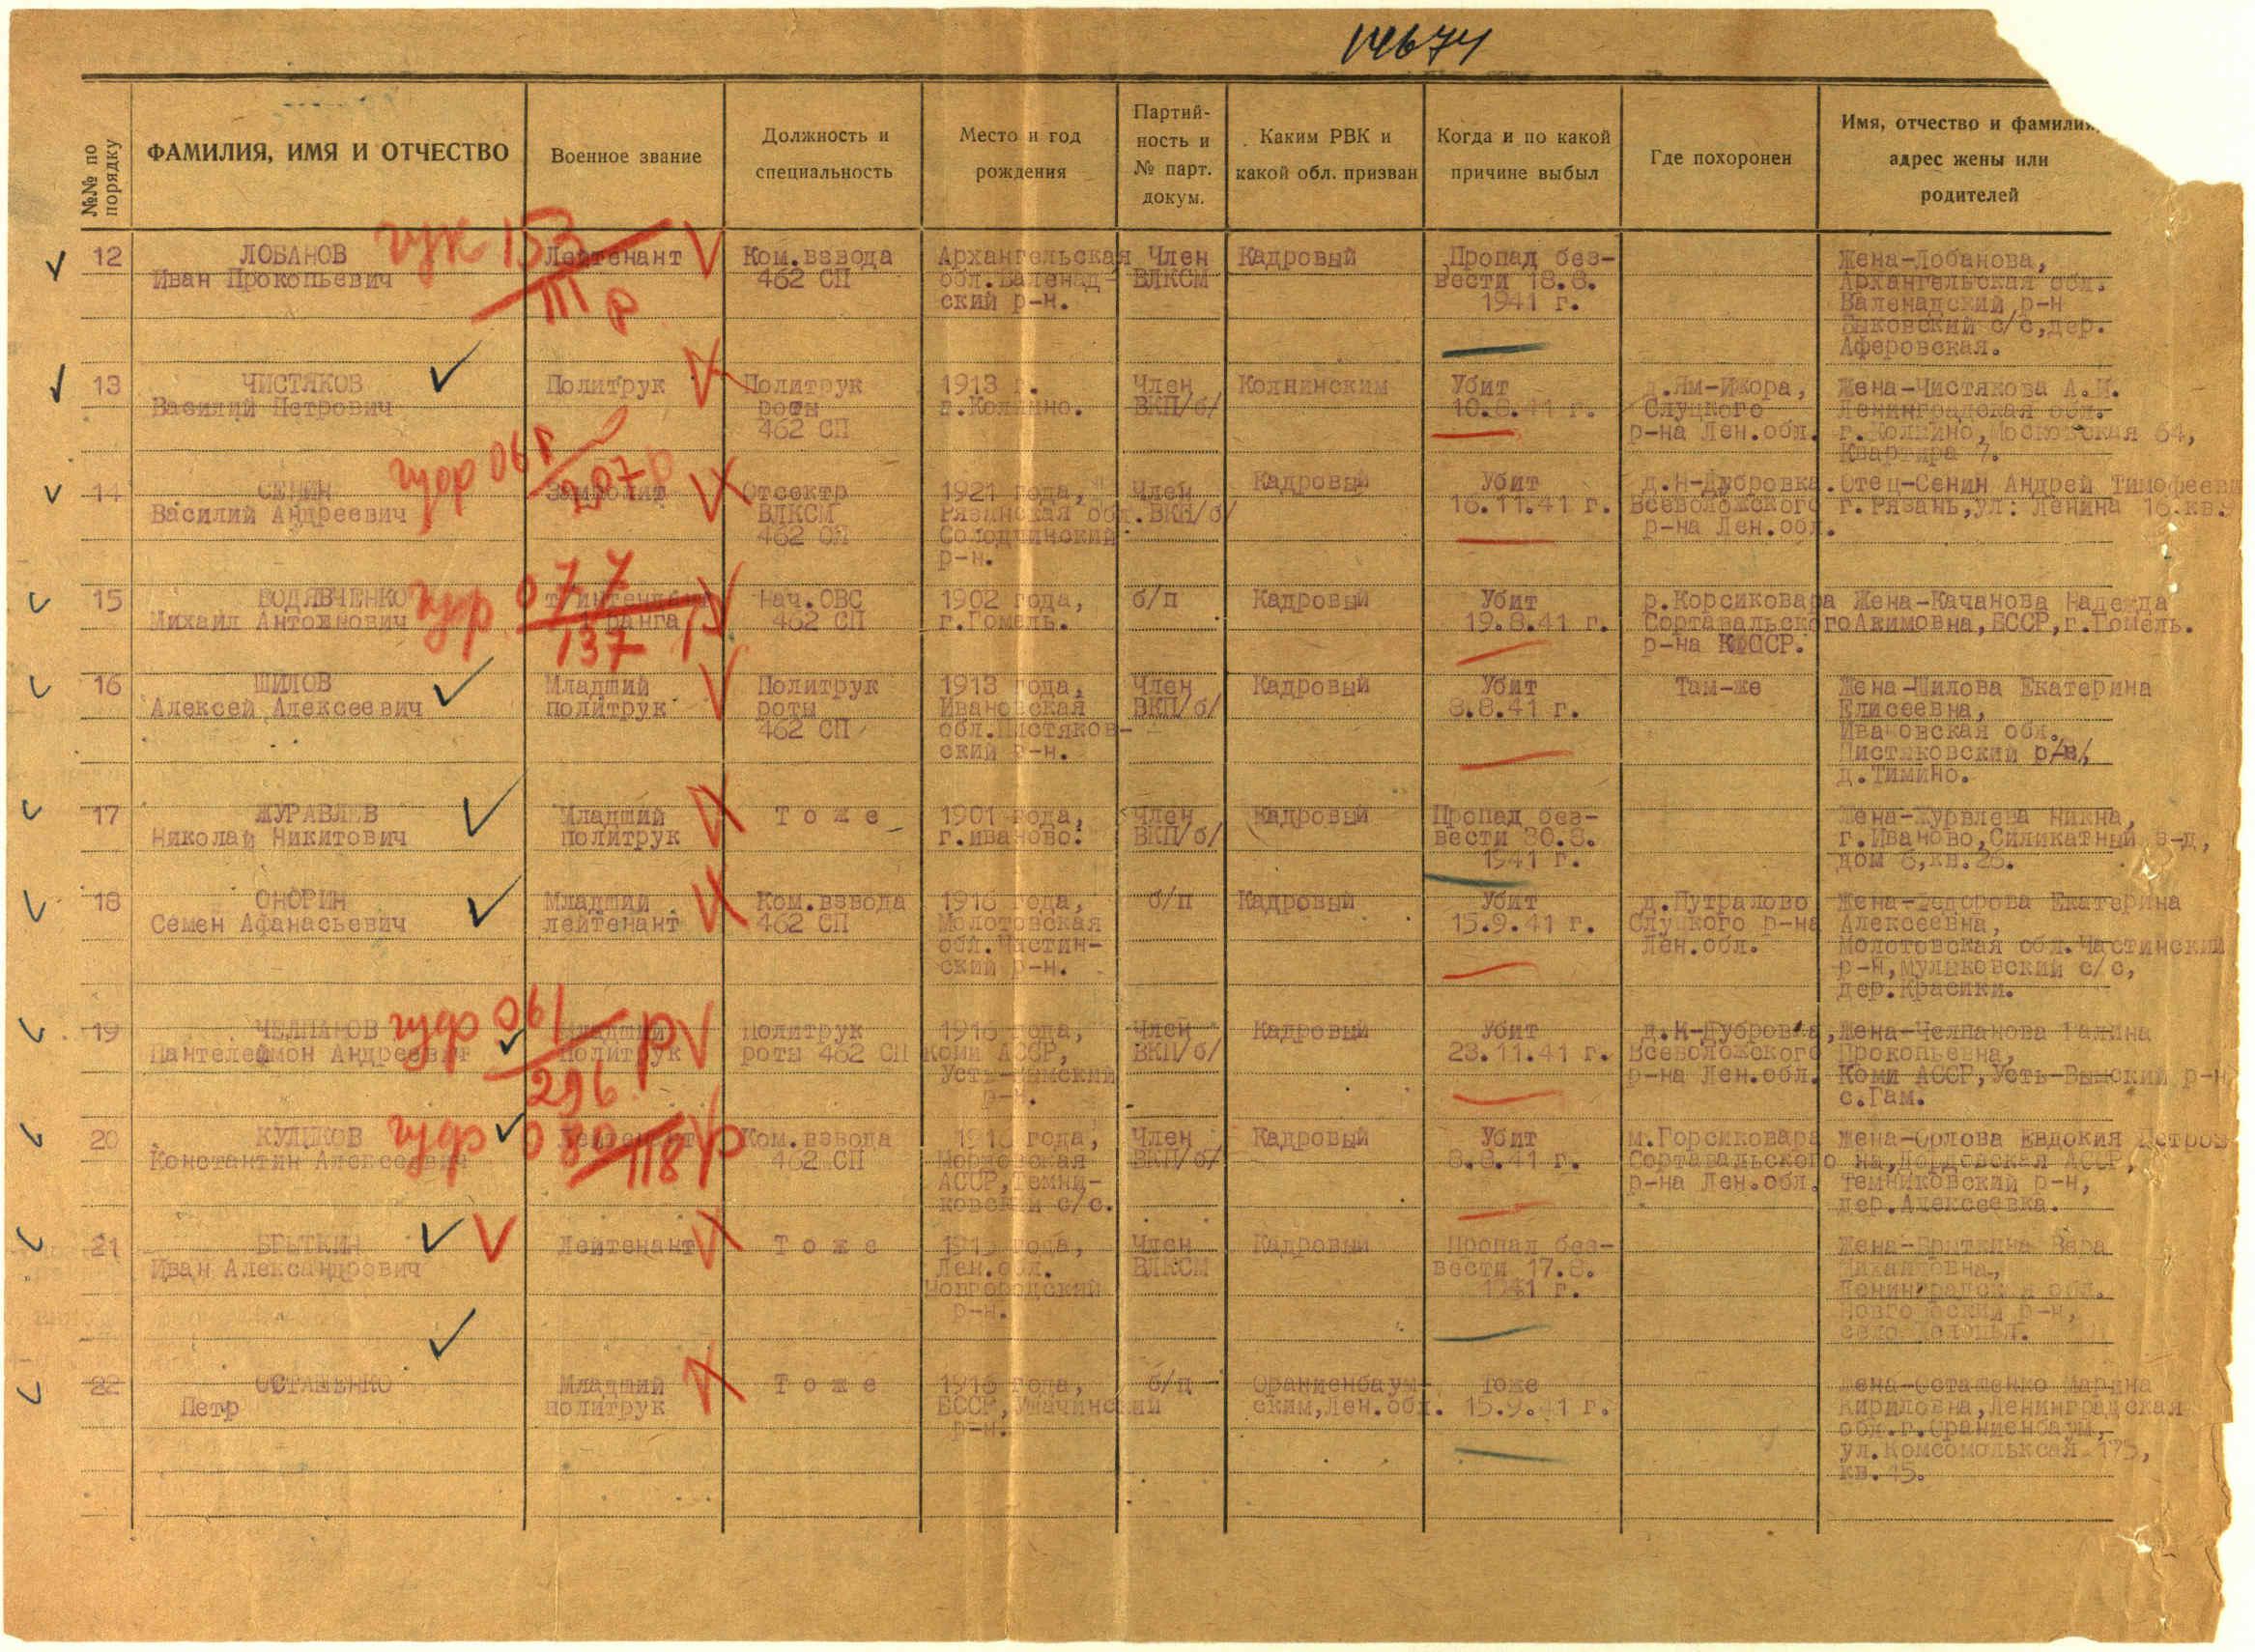 14674
№№ по порядку
ФАМИЛИЯ, ИМЯ И ОТЧЕСТВО
Военное звание
Должность и
специальность
Место и год
рождения
Партий-
ность и
№ парт.
докум.
Каким РВК и
какой обл. призван
Когда и по какой
причине выбыл
Где похоронен
Имя, отчество и фамилия,
адрес жены или
родителей
12
ЛОБАНОВ
Иван Прокопьевич
Лейтенант
Ком.взвода
462 СП
Архангельская
обл.Валенад-
ский р-н.
Член
ВЛКСМ
Кадровый
Пропад без-
вести 18.8.
1941 г.
Жена-Лобанова,
Архангельская обл.
Валенадский р-н
Быковский с/с,дер.
Аферовская.
13
ЧИСТЯКОВ
Василий Петрович
Политрук
Политрук
роты
462 СП
1913 г.
г.Колпино.
Член
ВКП/б/
Колпинским
Убит
10.9.41 г.
д.Ям-Ижора,
Слуцкого
р-на Лен.обл.
Жена-Чистякова А.И.
Ленинградская обл.
г.Колпино,Московская 64,
Квартира 7.
14
СЕНИН
Василий Андреевич
Замполит
Отсектр
ВЛКСМ
462 СП
1921 года,
Рязанская обл.
Солодчинский
р-н.
Член
ВКП/б/
Кадровый
Убит
16.11.41 г.
д.Н-Дубровка.
Всеволожского
р-на Лен.обл.
Отец-Сенин Андрей Тимофееви
г.Рязань,ул: Ленина 16.кв.9
15
ВОДЯВЧЕНКО
Михаил Антонинович
т.интендант
ранга
Нач.ОВС
462 СП
1902 года,
г.Гомель.
б/п
Кадровый
Убит
19.8.41 г.
р.Корсиковара
Сортавальского
р-на КФССР.
Жена-Качанова Надежда
Акимовна,БССР,г.Гомель.
16
ШИЛОВ
Алексей Алексеевич
Младший
политрук
Политрук
роты
462 СП
1913 года,
Ивановская
обл.Пистяков-
ский р-н.
Член
ВКП/б/
Кадровый
Убит
8.8.41 г.
Там-же
Жена-Шилова Екатерина
Елисеевна,
Ивановская обл.
Пистяковский р/н/,
д.Тимино.
17
ЖУРАВЛЕВ
Николай Никитович
Младший
политрук
Т о ж е
1901 года,
г.Иваново.
Член
ВКП/б/
Кадровый
Пропад без-
вести 30.8.
1941 г.
Жена-Журвлева Нина,
г.Иваново,Силикатный з-д,
дом 6,кв.26.
18
ОНОРИН
Семен Афанасьевич
Младший
лейтенант
Ком.взвода
462 СП
1916 года,
Молотовская
обл.Частин-
ский р-н.
б/п
Кадровый
Убит
15.9.41 г.
д.Путралово
Слуцкого р-на
Лен.обл.
Жена-Федорова Екатерина
Алексеевна,
Молотовская обл.Частинский
р-н,мулыковский с/с,
дер.Красики.
19
ЧЕЛПАНОВ
Пантелеймон Андреевич
Младший
политрук
Политрук
роты 462 СП
1916 года,
Коми АССР,
Усть-Вымский
р-н.
Член
ВКП/б/
Кадровый
Убит
23.11.41 г.
д.Н-Дубровка,
Всеволожского
р-на Лен.обл.
Жена-Челпанова Галина
Прокопьевна,
Коми АССР,Усть-Вымский р-н
с.Гам.
20
КУЛИКОВ
Константин Алексеевич
Лейтенант
Ком.взвода
462 СП
года,
АССР,Темни-
ковский с/с.
Член
ВКП/б/
Кадровый
Убит
8.8.41 г.
м.Горсиковара
Сортавальского
р-на Лен.обл.
Жена-Орлова Евдокия Петров
на,Мордовская АССР,
Темниковский р-н,
дер.Алексеевка.
21
БРЫТКИН
Иван Александрович
Лейтенант
Т о ж е
года,
Лен.обл.
Новгородский
р-н.
Член
ВЛКСМ
Кадровый
Пропад без-
вести 17.8.
1941 г.
Жена-Брыткина Вера
Михайловна,
Ленинградская обл.
р-н,
село
22
ОСТАШЕНКО
Петр
Младший
политрук
Т о ж е
1916 года,
БССР,Ушачинский
р-н.
б/п
Ораниенбаум-
ским,Лен.обл.
Тоже
15.9.41 г.
Жена-Осташенко Марина
Кириловна,Ленинградская
обл.г.Ораниенбаум,
ул.Комсомольксая 175,
кв.15.